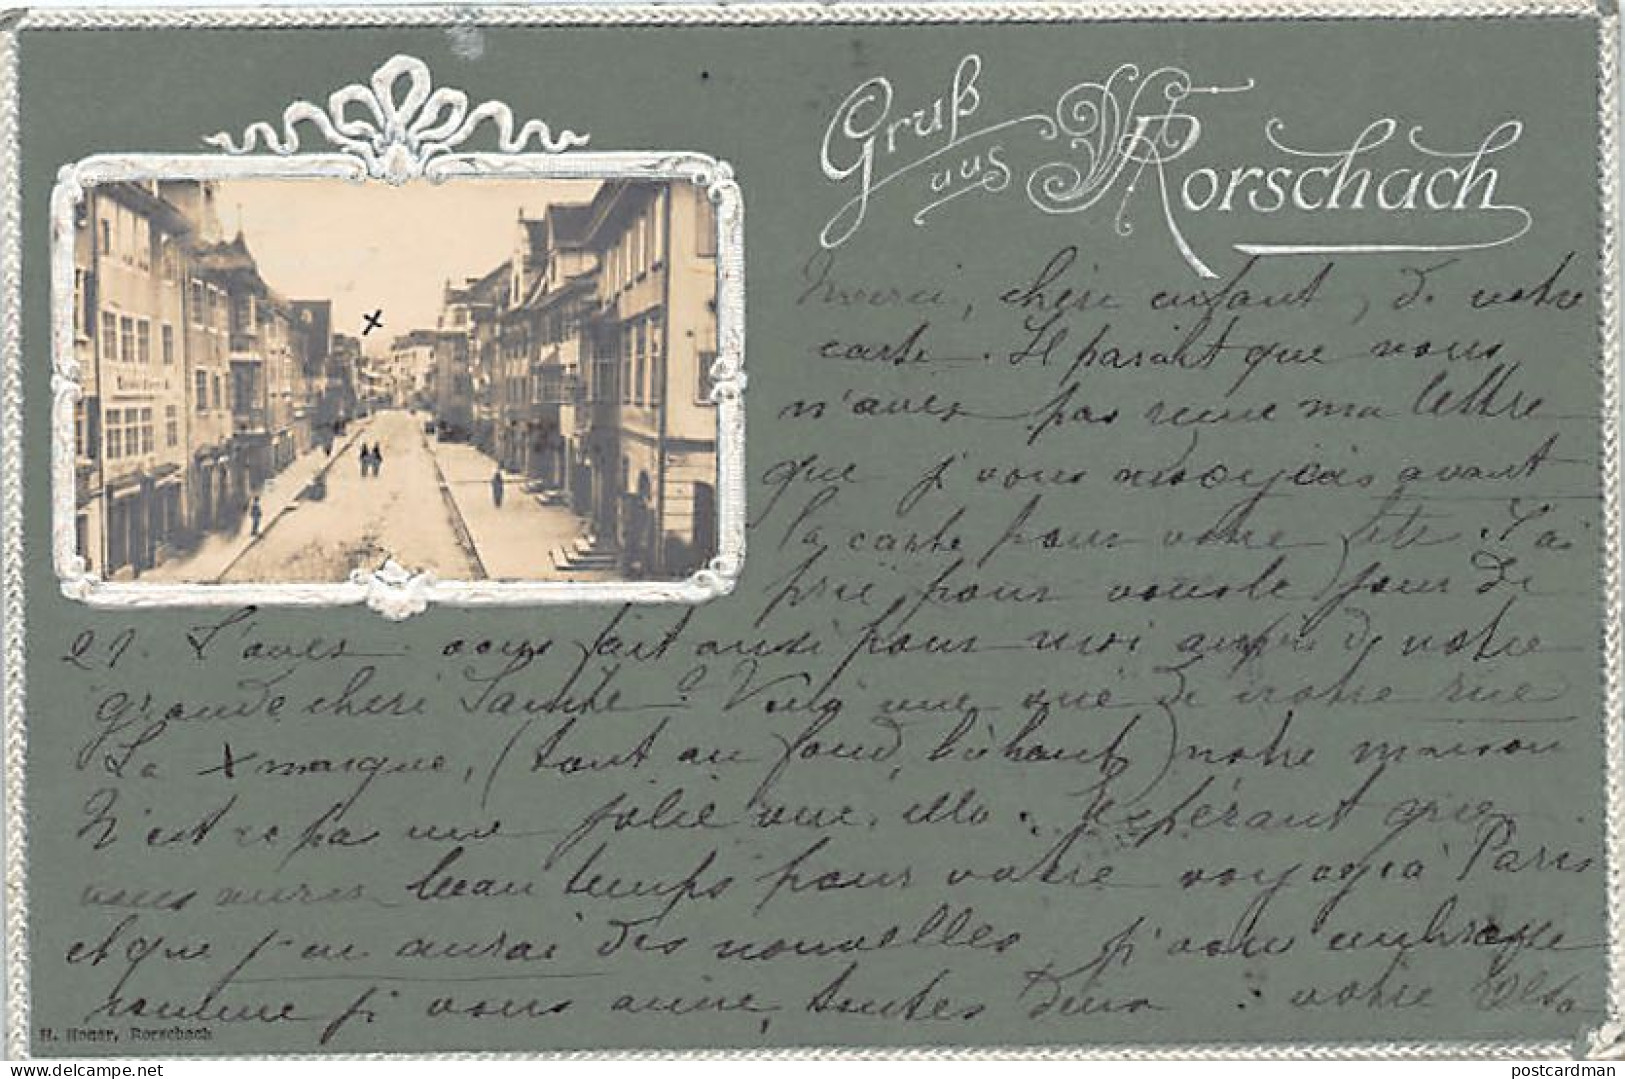 Gruß
aus Rorschach
Merci, chère enfant, de votre
carte. Il parait que vous
n'avez pas reçue ma lettre
que je vous avant
la carte pour votre fête. J'ai
prié pour vous le jour de
21. L'avez vous fait aussi pour moi auprès de votre
grande chère Sainte? Voilà une vue de notre rue
La X marque, (tout au fond, ) notre maison
N'est ce pas une jolie vue. Espérant que
vous aurez beau temps pour votre voyage à Paris
et que j'en aurai des nouvelles, je vous embrasse
comme je vous aime, toutes deux. votre
H. Honer, Rorschach
postcardman